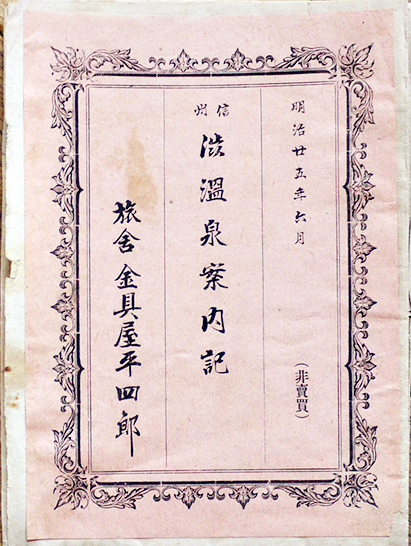 明治廿五年六月
（非賣買）
信州
渋温泉案内記
旅舎 金具屋平四郎